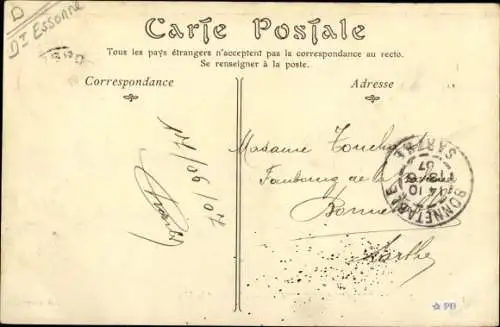 D
Dt Essonne
Carte Postale
Tous les pays étrangers n'acceptent pas la correspondance au recto.
Se renseigner à la poste.
Correspondance
Adresse
Madame
Faubourg de la
Sarthe
BONNETABLE
SARTHE
14 10
07
PB